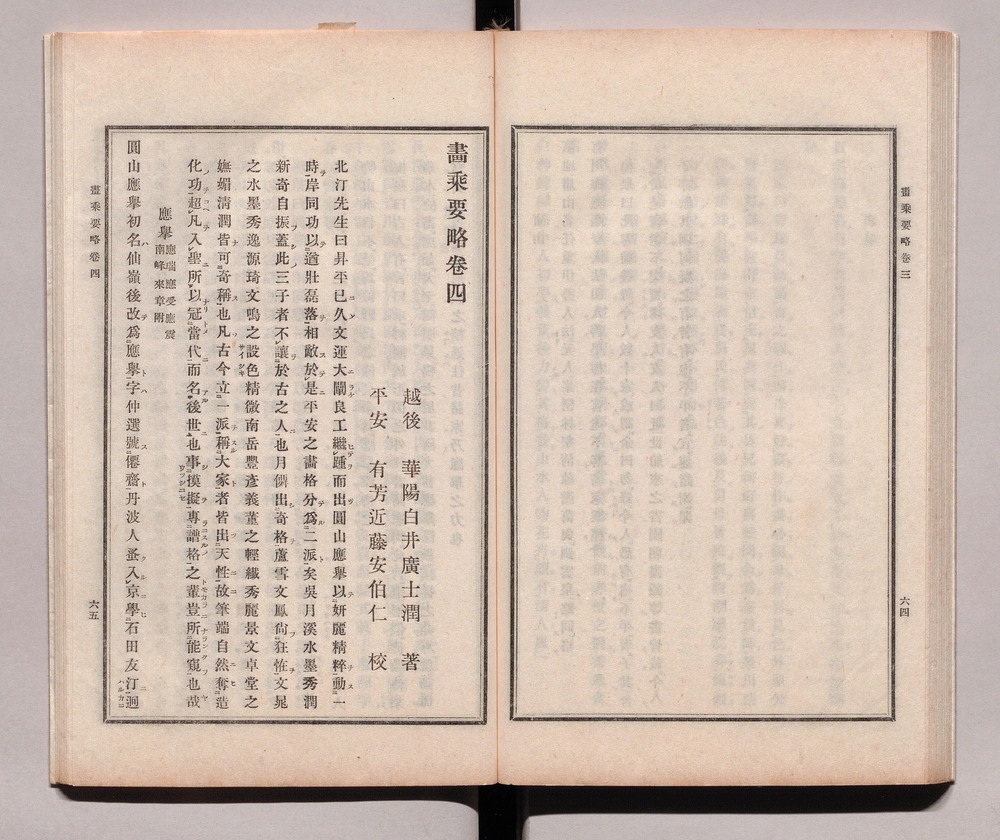 畫乘要略卷三
六四
畫乘要略卷四
越後　華陽白井廣士潤　著
平安　有芳近藤安伯仁　校
北汀先生曰昇平已久文運大闡良工繼踵而出圓山應擧以妍麗精粹動一
時岸岸同功以遒壯磊落相敵於是平安之畫格分爲二派矣吳月溪水墨秀潤
新奇自振蓋此三子者不讓於古之人也月僊出奇格蘆雪文鳳尙狂怪文晁
之水墨秀逸源琦文鳴之設色精微南岳豐彥義董之輕纎秀麗景文卓堂之
嫵媚淸潤皆可奇稱也凡古今立一派稱大家者皆出天性故筆端自然奪造
化功超凡入聖所以冠當代而名後世也事摸擬專譜格之輩豈所能窺也哉
應擧　應瑞應受應震
南峰來章附
圓山應擧初名仙嶺後改爲應擧字仲選號僊齋丹波人蚤入京學石田友汀迥
畫乘要略卷四
六五